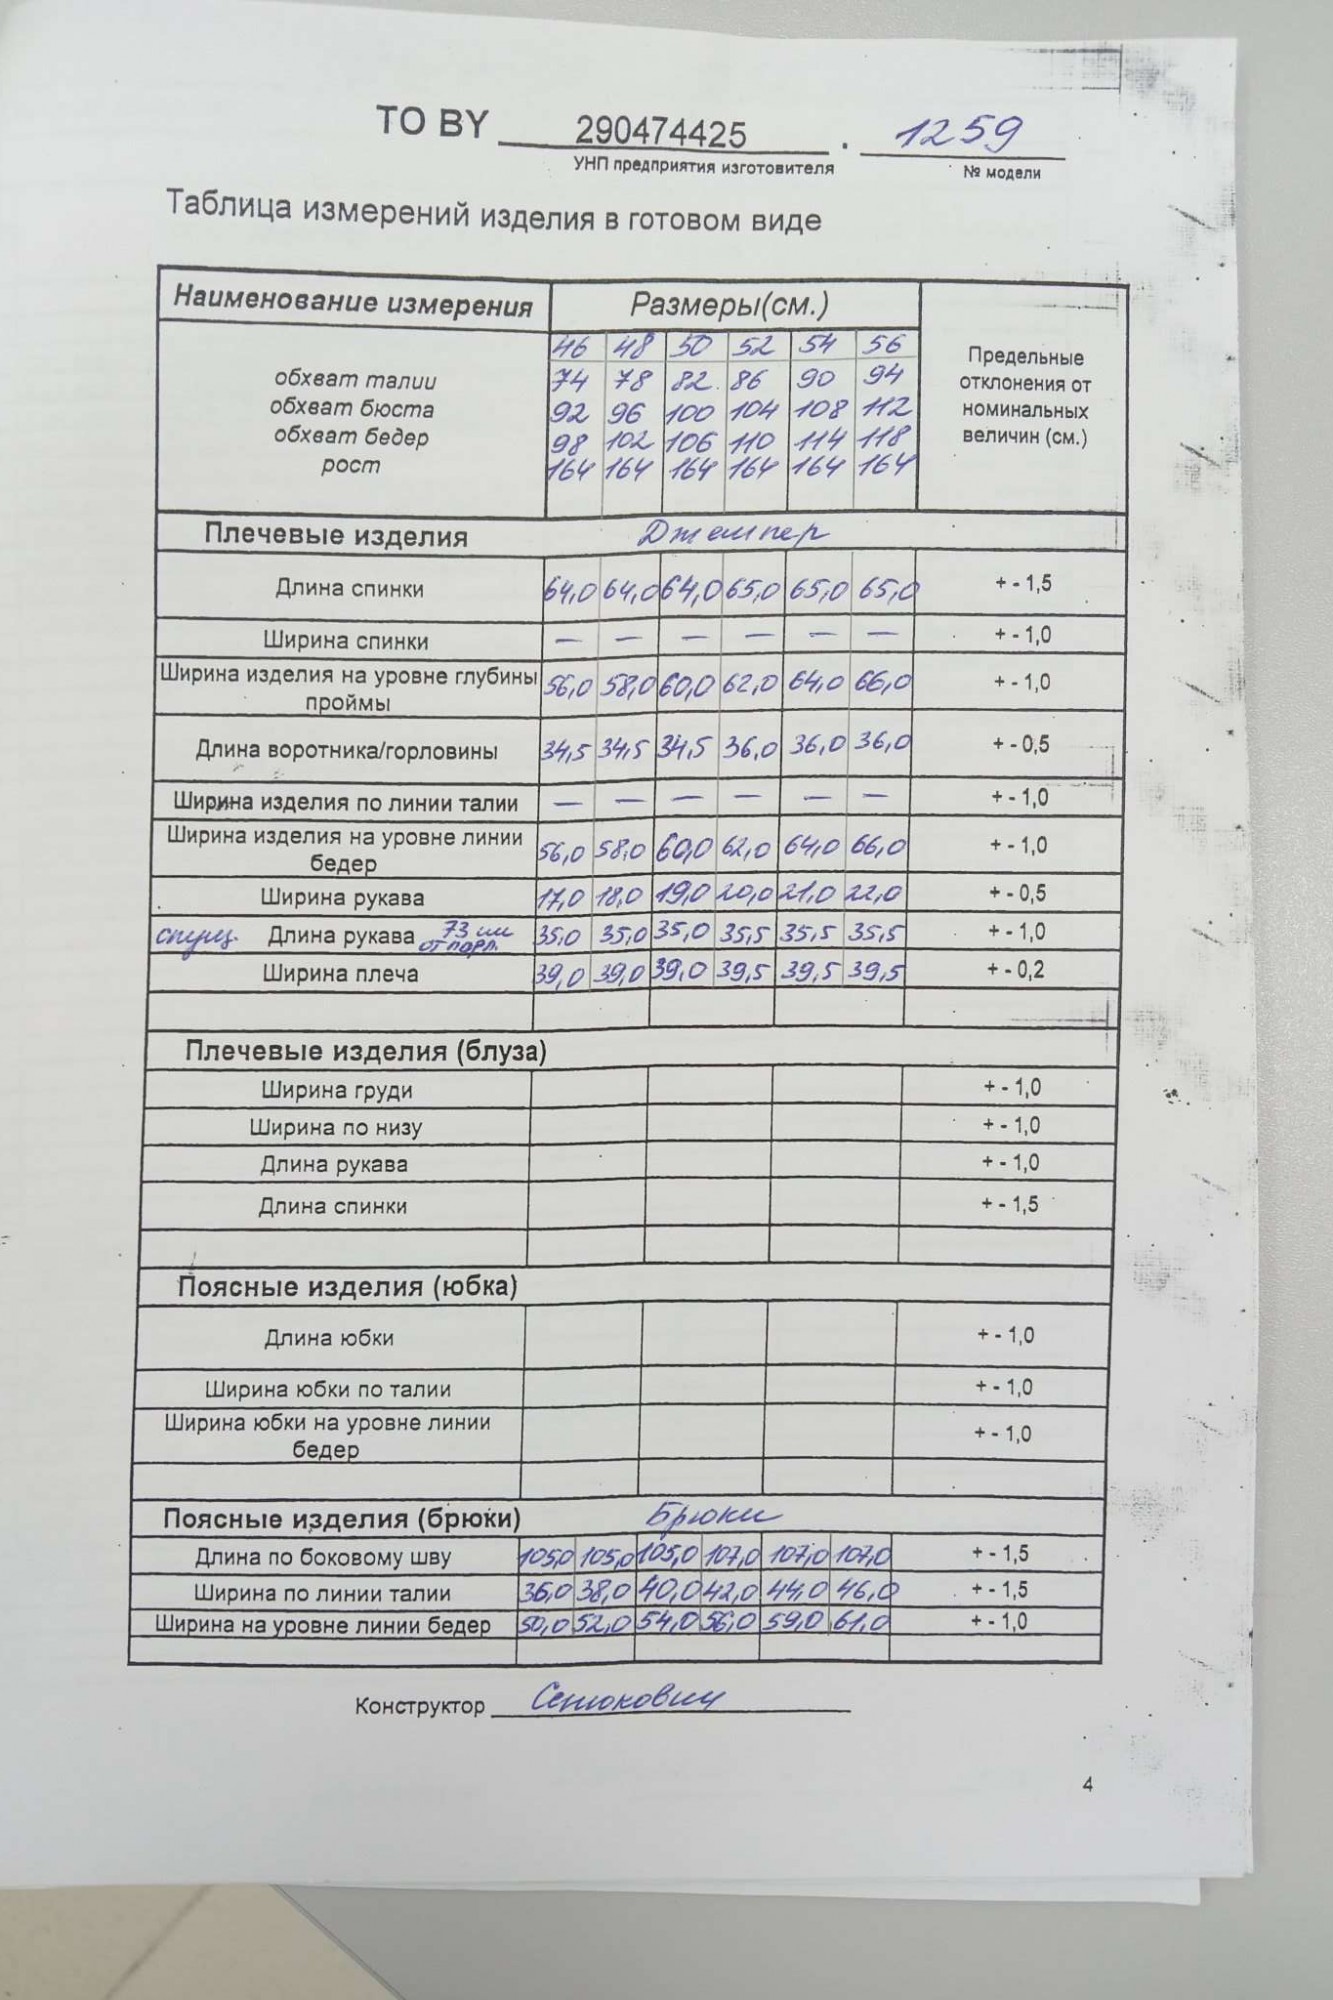 ТО BY 290474425 . 1259
УНП предприятия изготовителя № модели
Таблица измерений изделия в готовом виде
Наименование измерения Размеры(см.) Предельные отклонения от номинальных величин (см.)
46 48 50 52 54 56
обхват талии 74 78 82 86 90 94
обхват бюста 92 96 100 104 108 112
обхват бедер 98 102 106 110 114 118
рост 164 164 164 164 164 164
Плечевые изделия Джемпер
Длина спинки 64,0 64,0 64,0 65,0 65,0 65,0 + - 1,5
Ширина спинки — — — — — — + - 1,0
Ширина изделия на уровне глубины проймы 56,0 58,0 60,0 62,0 64,0 66,0 + - 1,0
Длина воротника/горловины 34,5 34,5 34,5 36,0 36,0 36,0 + - 0,5
Ширина изделия по линии талии — — — — — — + - 1,0
Ширина изделия на уровне линии бедер 56,0 58,0 60,0 62,0 64,0 66,0 + - 1,0
Ширина рукава 17,0 18,0 19,0 20,0 21,0 22,0 + - 0,5
спущ. Длина рукава 73 см от горл. 35,0 35,0 35,0 35,5 35,5 35,5 + - 1,0
Ширина плеча 39,0 39,0 39,0 39,5 39,5 39,5 + - 0,2
Плечевые изделия (блуза)
Ширина груди + - 1,0
Ширина по низу + - 1,0
Длина рукава + - 1,0
Длина спинки + - 1,5
Поясные изделия (юбка)
Длина юбки + - 1,0
Ширина юбки по талии + - 1,0
Ширина юбки на уровне линии бедер + - 1,0
Поясные изделия (брюки) Брюки
Длина по боковому шву 105,0 105,0 105,0 107,0 107,0 107,0 + - 1,5
Ширина по линии талии 36,0 38,0 40,0 42,0 44,0 46,0 + - 1,5
Ширина на уровне линии бедер 50,0 52,0 54,0 56,0 59,0 61,0 + - 1,0
Конструктор
4